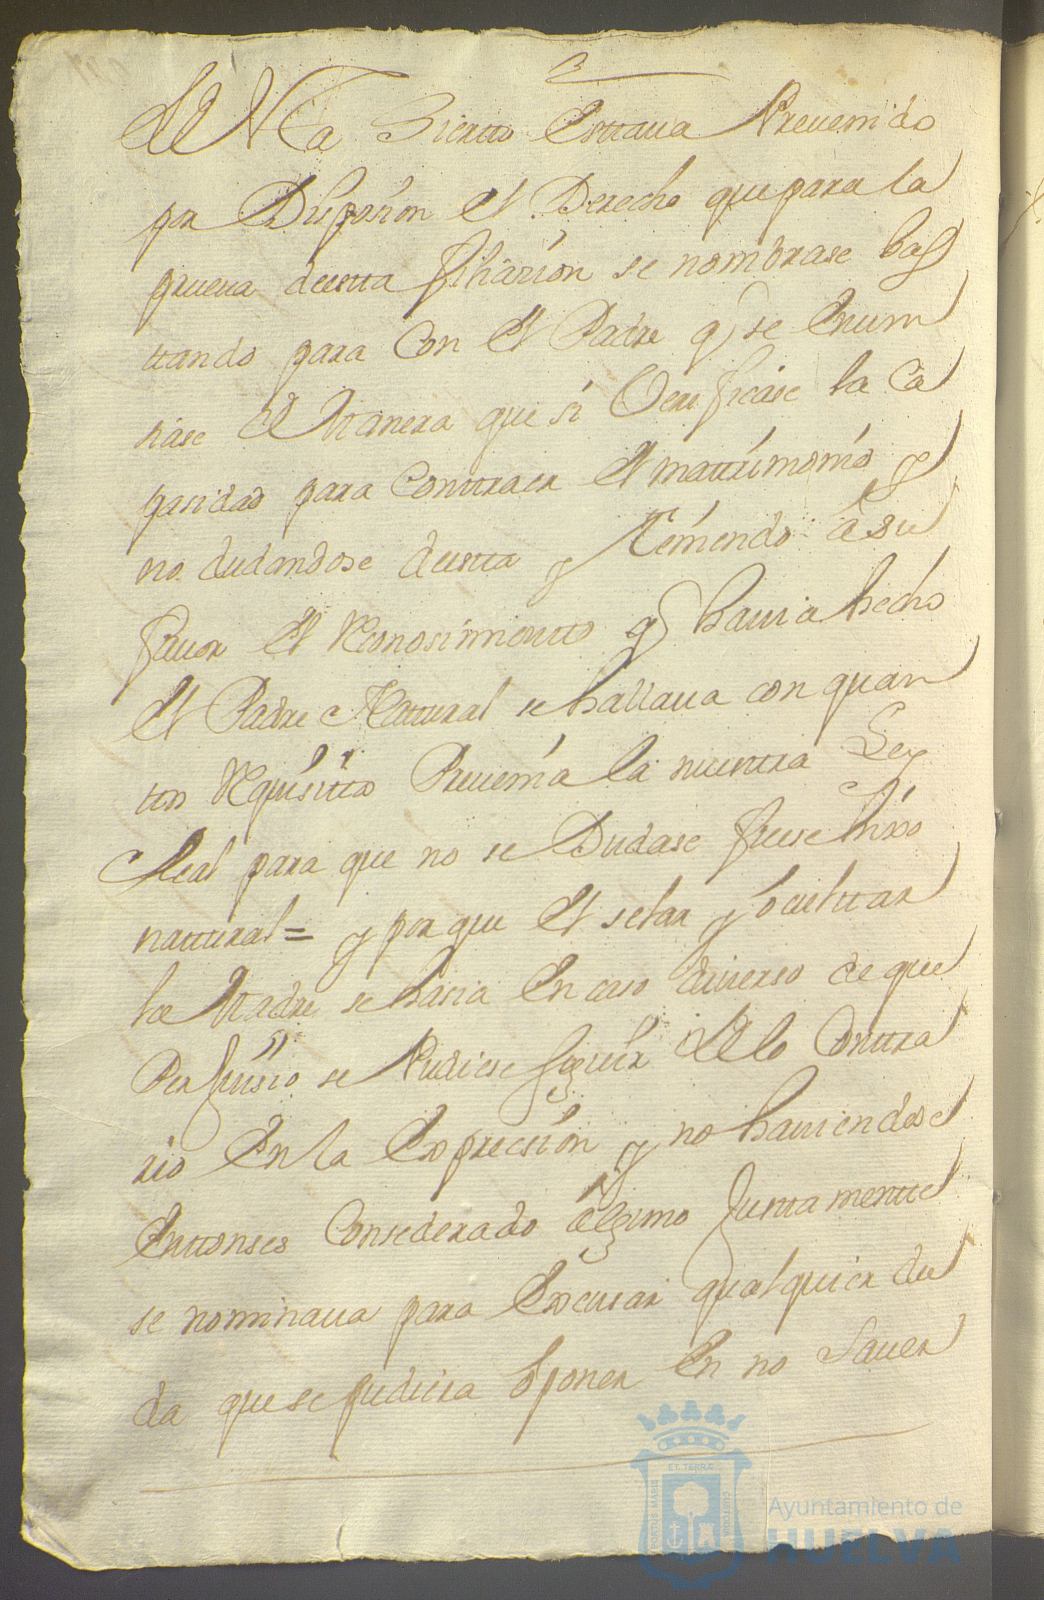 Sierto Estaua Preuenido
por Disposion el Derecho que para la
prueua deesta filiasion se nombrase bas
tando para Con el Padre q se Enun
siase de Manera que si Verificase la Ca
pasidad para Contraer el matrimonio y
no dudandose deesta y teniendo a su
fauor el Reconosimiento q hauia hecho
el Padre Natural se hallaua con quan
tos Requisitos Preuenia la nuestra Ley
Real para que no se Dudase fuese hixo
natural = y porque el selar y ocultar
la Madre se hasia En caso diuerso de que
Perjuisio se Pudiese seguir de lo Contra
rio En la Expresion y no hauiendose
Entonses Considerado alguno Juntamente
se nominaua para Excusar qualquier du
da que se pudiera oponer En no Sauer
Ayuntamiento de
HUELVA
ET TERRÆ
PORTUS MARIS
CUSTODIA